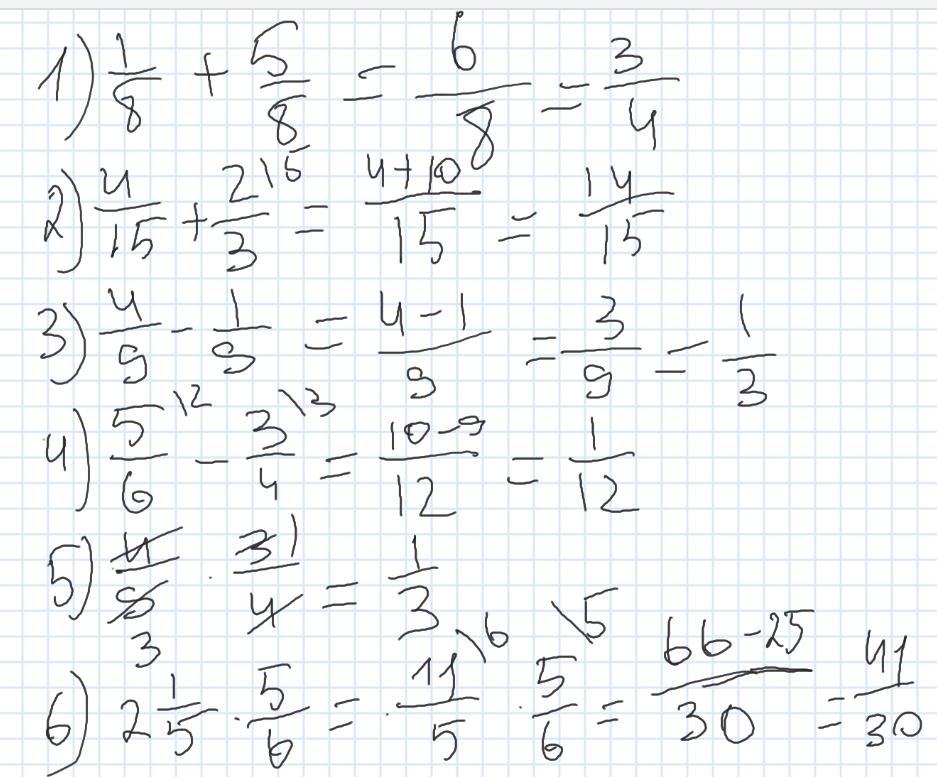 1) 1/8 + 5/8 = 6/8 = 3/4
2) 4/15 + 2\5/3 = 4+10/15 = 14/15
3) 4/9 - 1/9 = 4-1/9 = 3/9 = 1/3
4) 5\2/6 - 3\3/4 = 10-9/12 = 1/12
5) 4/9 3 · 3 1/4 = 1/3
6) 2 1/5 · 5/6 = 11\6/5 · 5\5/6 = 66-25/30 = 41/30